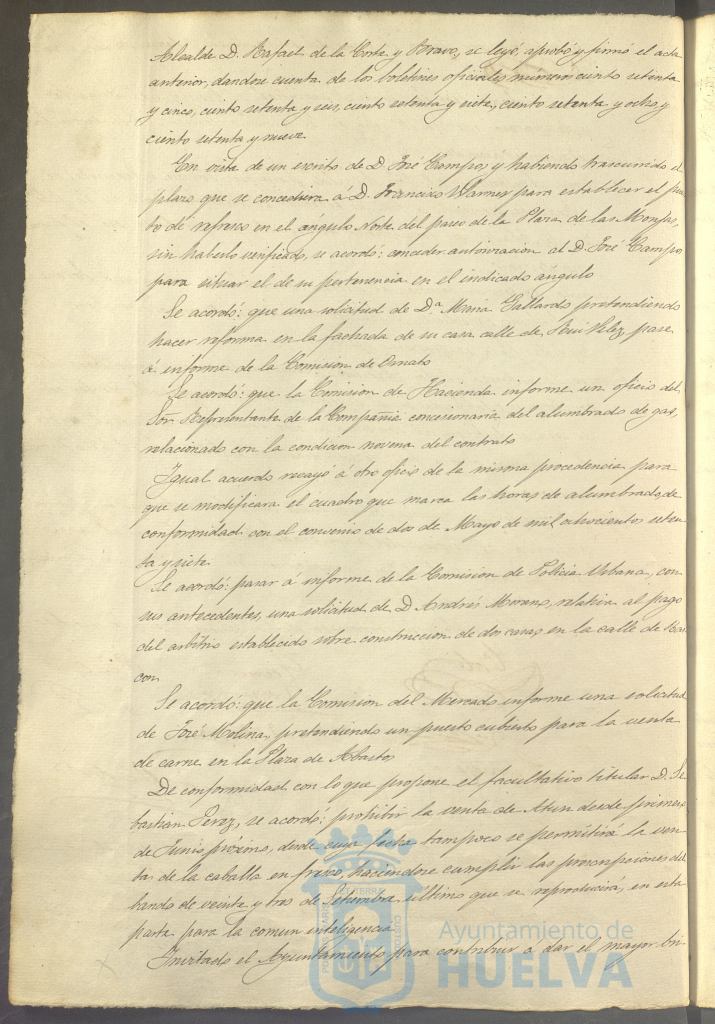 Alcalde D. Rafael de la Corte y Bravo, se leyó, aprobó y firmó el acta
anterior, dandose cuenta de los boletines oficiales número ciento setenta
y cinco, ciento setenta y seis, ciento setenta y siete, ciento setenta y ocho y
ciento setenta y nueve
En vista de un escrito de D José Campos y habiendo trascurrido el
plazo que se concediera á D. Francisco para establecer el pues
to de refresco en el ángulo Norte del paseo de la Plaza de las Monjas,
sin haberlo verificado, se acordó: conceder autorizacion al D. José Campos
para situar el de su pertenencia en el indicado ángulo
Se acordó: que una solicitud de Dª Maria Gallardo pretendiendo
hacer reforma en la fachada de su casa calle de Rui Velez, pase
á informe de la Comision de Ornato
Se acordó: que la Comision de Hacienda informe un oficio del
Sor. Representante de la Compañia concesionaria del alumbrado de gas,
relacionado con la condicion novena del contrato
Igual acuerdo recayó á otro oficio de la misma procedencia para
que se modificara el cuadro que marca las horas de alumbrado, de
conformidad con el convenio de dos de Mayo de mil ochocientos seten
ta y siete
Se acordó: pasar á informe de la Comision de Policia Urbana, con
sus antecedentes, una solicitud de D Andrés Moreno, relativa al pago
del arbitrio establecido sobre construccion de dos casas en la calle de Ras
con
Se acordó: que la Comision del Mercado informe una solicitud
de José Molina, pretendiendo un puesto cubierto para la venta
de carne en la Plaza de Abastos
De conformidad con lo que propone el facultativo titular D. Se
bastian Perez, se acordó: prohibir la venta de Atun desde primero
de Junio próximo, desde cuya fecha tampoco se permitirá la ven
ta de la caballa en fresco, haciendose cumplir las prescripciones del
bando de veinte y tres de Setiembre último que se reproducirá, en esta
parte para la comun inteligencia
Invitado el Ayuntamiento para contribuir á dar el mayor bri
Ayuntamiento de
HUELVA